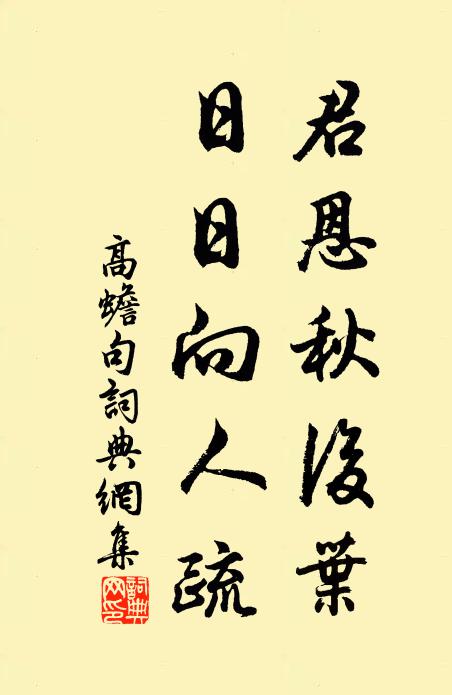 君恩秋後葉
日日向人疏
高蟾句詞典網集
詞典網印